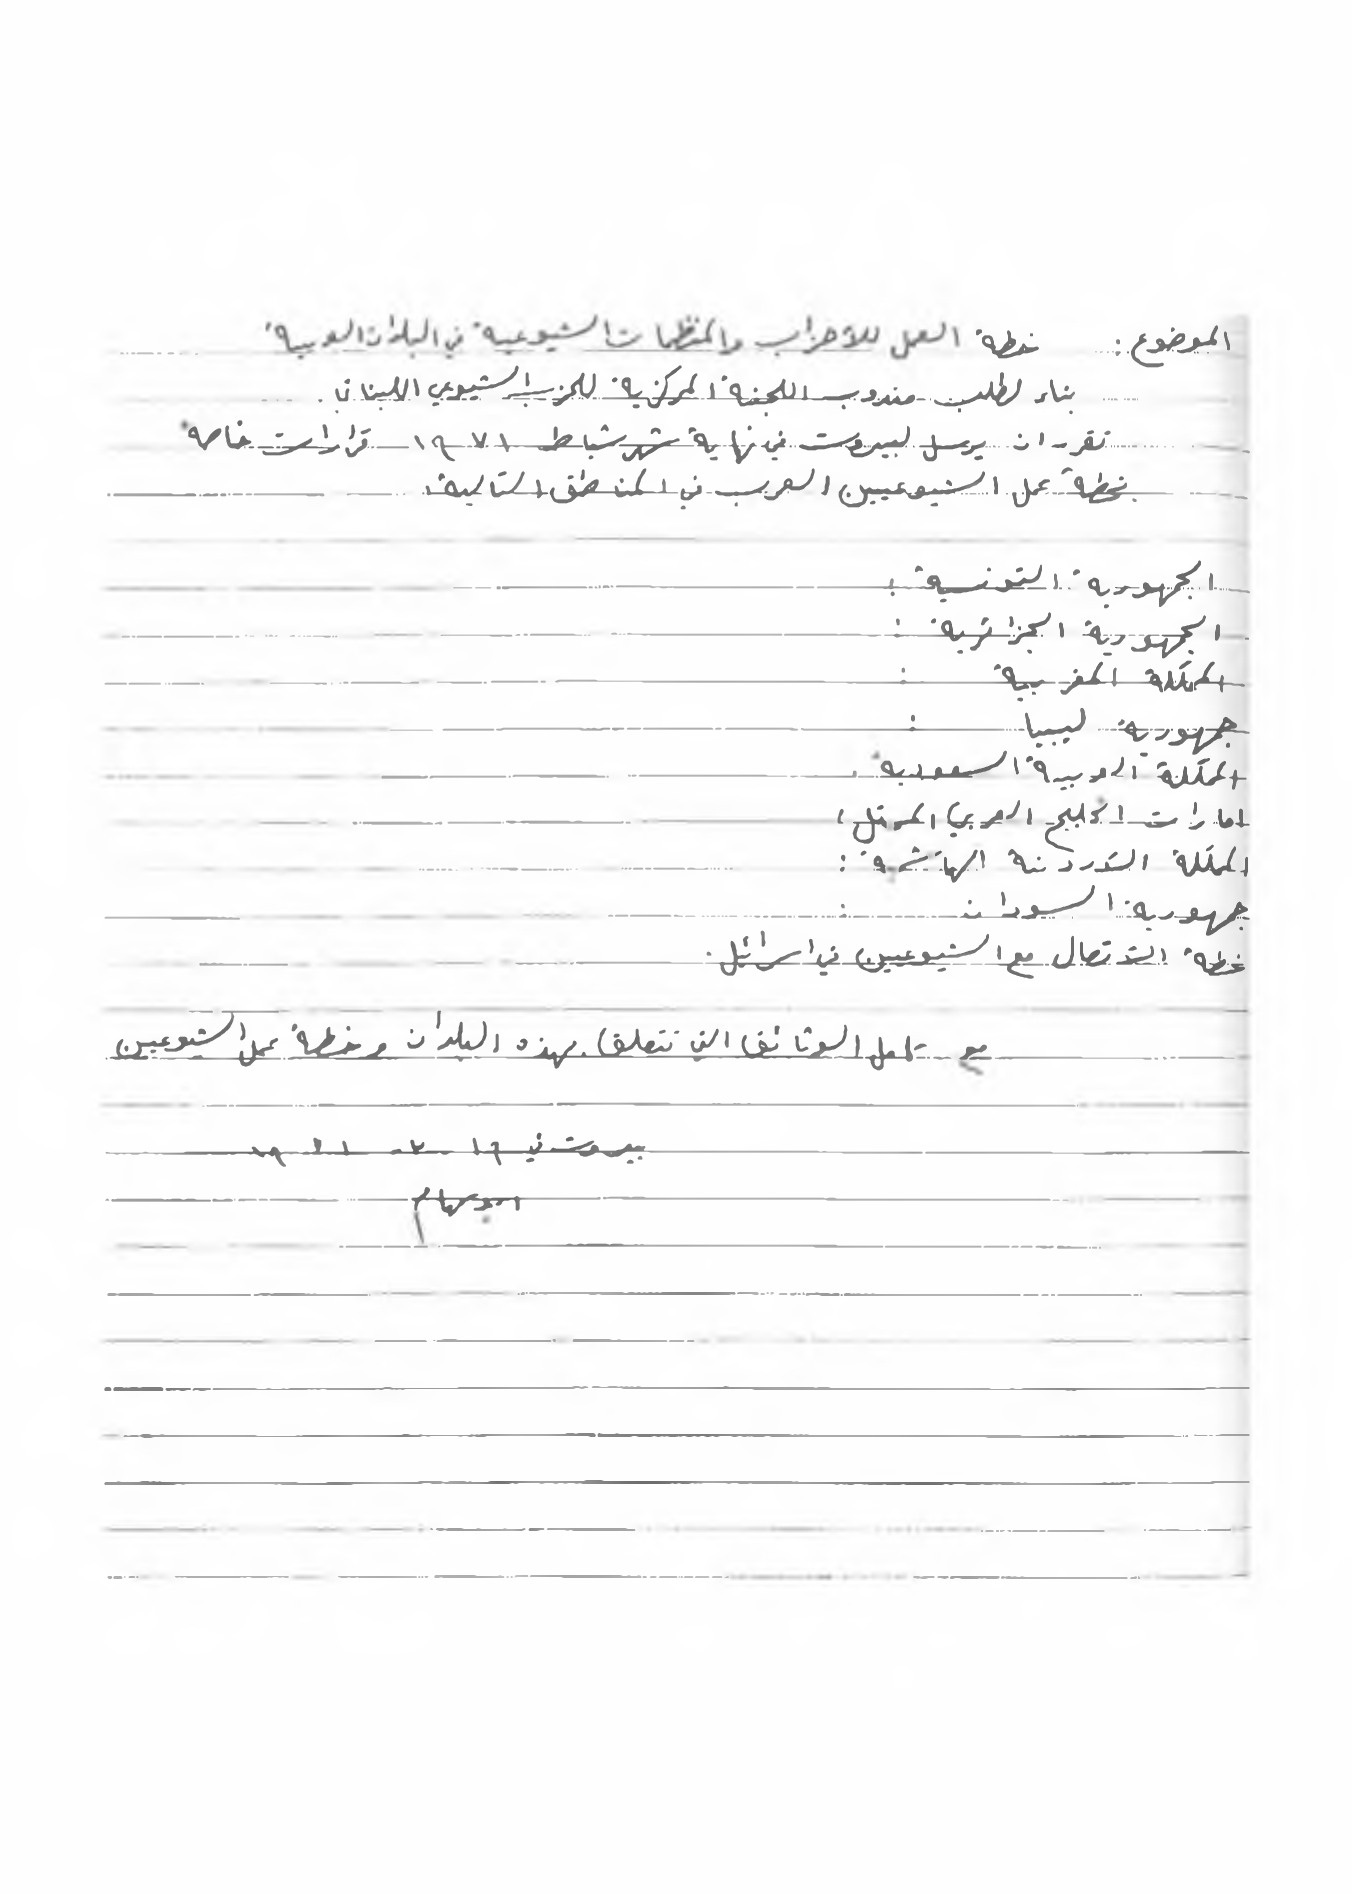 الموضوع: خطة العمل للاحزاب والمنظمات الشيوعية في البلدان العربية
بناء لطلب مندوب اللجنة المركزية للحزب الشيوعي اللبناني.
تقرر ان يرسل لبيروت في نهاية شهر شباط ١٩٧١ قرارات خاصة
بخطة عمل الشيوعيين العرب في المناطق التالية:
الجمهورية التونسية:
الجمهورية الجزائرية:
المملكة المغربية:
جمهورية ليبيا:
المملكة العربية السعودية:
امارات الخليج العربي
المملكة الاردنية الهاشمية:
جمهورية السودان:
خطة الاتصال مع الشيوعيين في اسرائيل.
مع كامل الوثائق التي تتعلق بهذه البلدان وخطة عمل الشيوعيين
بيروت في